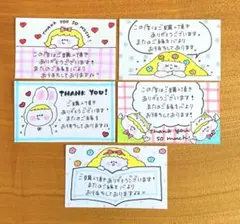 THANK YOU SO MUCH!
この度はご購入頂き
ありがとうございます!
またのご縁を心より
お待ちしております
この度はご購入頂き
ありがとうございます!
またのご縁を心より
お待ちしております
THANK YOU!
ご購入頂き
ありがとうございます!
またのご縁を心より
お待ちしております
ご購入頂き
ありがとうございます!
またのご縁を心より
お待ちしております
Thank you
so much!
ご購入頂き
ありがとうございます!
またのご縁を心より
お待ちしております